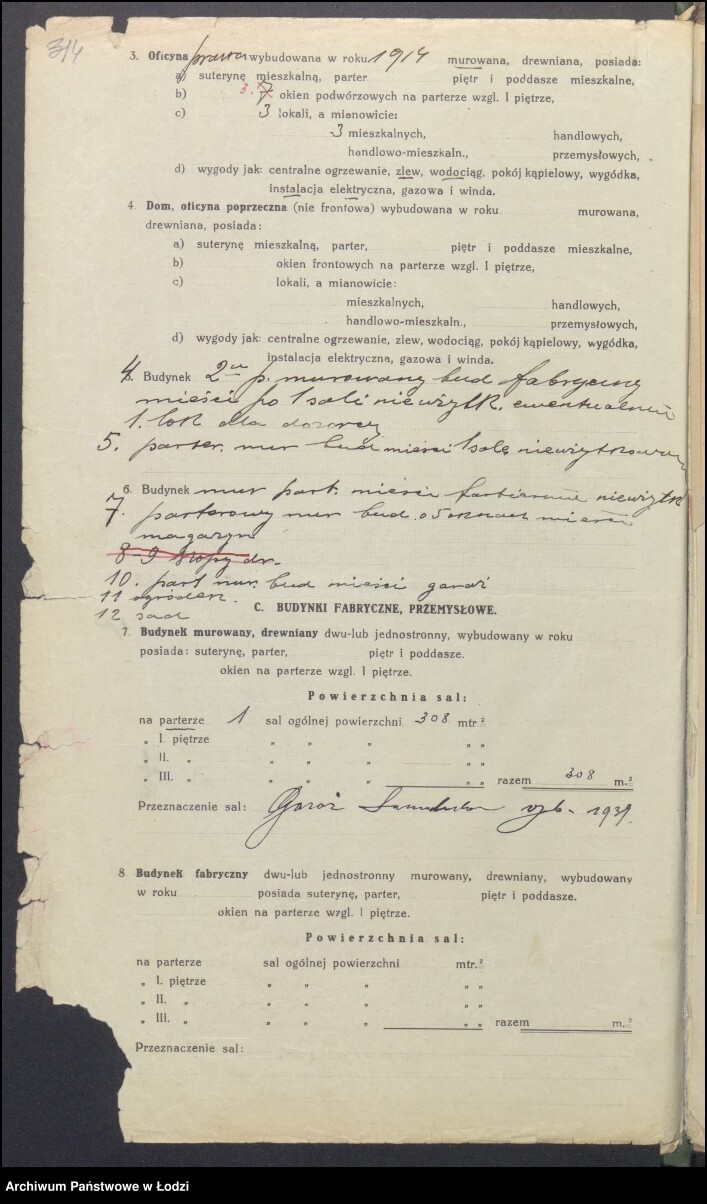 314
3. Oficyna prawa wybudowana w roku 1914 murowana, drewniana, posiada:
a) suterynę mieszkalną, parter piętr i poddasze mieszkalne,
b) 3. 7 okien podwórzowych na parterze wzgl. I piętrze,
c) 3 lokali, a mianowicie:
3 mieszkalnych, handlowych,
handlowo-mieszkaln., przemysłowych,
d) wygody jak: centralne ogrzewanie, zlew, wodociąg, pokój kąpielowy, wygódka,
instalacja elektryczna, gazowa i winda.
4. Dom, oficyna poprzeczna (nie frontowa) wybudowana w roku murowana,
drewniana, posiada:
a) suterynę mieszkalną, parter, piętr i poddasze mieszkalne,
b) okien frontowych na parterze wzgl. I piętrze,
c) lokali, a mianowicie:
mieszkalnych, handlowych,
handlowo-mieszkaln., przemysłowych,
d) wygody jak: centralne ogrzewanie, zlew, wodociąg, pokój kąpielowy, wygódka,
instalacja elektryczna, gazowa i winda.
4. Budynek 2 p. murowany bud fabryczny
mieści po 1 sali nieużytk. ewentualnie
1. lok dla dozorcy
5. parter. mur bud mieści 1 salę nieużytkowaną
6. Budynek mur part. mieści farbiarnie nieużytk
7. parterowy mur bud. o 5 oknach mieści
magazyn
8-9 szopy dr.
10. part mur. bud mieści garaż
11 ogródek.
12 sad
C. BUDYNKI FABRYCZNE, PRZEMYSŁOWE.
7. Budynek murowany, drewniany dwu-lub jednostronny, wybudowany w roku
posiada: suterynę, parter, piętr i poddasze.
okien na parterze wzgl. I piętrze.
Powierzchnia sal:
na parterze 1 sal ogólnej powierzchni 308 mtr.²
„ I. piętrze „ „ „ „ „
„ II. „ „ „ „ „ „
„ III. „ „ „ „ „ „ razem 308 m.²
Przeznaczenie sal: Garaż 1939.
8 Budynek fabryczny dwu-lub jednostronny murowany, drewniany, wybudowany
w roku posiada suterynę, parter, piętr i poddasze.
okien na parterze wzgl. I piętrze.
Powierzchnia sal:
na parterze sal ogólnej powierzchni mtr.²
„ I. piętrze „ „ „ „ „
„ II. „ „ „ „ „ „
„ III. „ „ „ „ „ „ razem m.²
Przeznaczenie sal:
Archiwum Państwowe w Łodzi